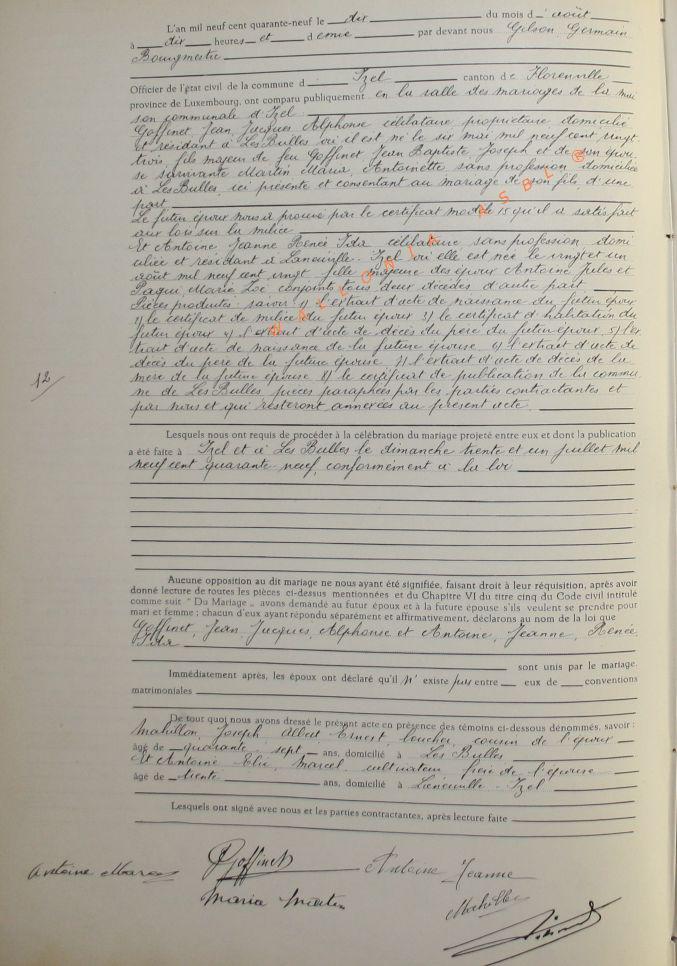 L'an mil neuf cent quarante-neuf le dix du mois d'août
à dix heures et demie par devant nous Gilson Germain
Bourgmestre
Officier de l'état civil de la commune d Izel canton de Florenville
province de Luxembourg, ont comparu publiquement en la salle des mariages de la mai
son communale d'Izel
Goffinet, Jean, Jacques, Alphonse célibataire propriétaire domicilié
et résidant à Les Bulles où il est né le six mai mil neuf cent vingt
trois, fils majeur de feu Goffinet Jean Baptiste Joseph et de son épou
se survivante Martin Maria, Antoinette sans profession domiciliée
à Les Bulles, ici présente et consentant au mariage de son fils, d'une
part
Le futur époux nous a prouvé par le certificat modèle 15 qu'il a satisfait
aux lois sur la milice
Et Antoine, Jeanne Renée Ida célibataire sans profession domi
ciliée et résidant à Laneuville-Izel où elle est née le vingt et un
août mil neuf cent vingt fille majeure des époux Antoine Jules et
Marie conjoints tous deux décédés d'autre part
Pièces produites: savoir 1) l'extrait d'acte de naissance du futur époux
2) le certificat de milice du futur époux 3) le certificat d'habitation du
futur époux 4) l'extrait d'acte de décès du père du futur époux 5) l'ex
trait d'acte de naissance de la future épouse 6) l'extrait d'acte de
décès du père de la future épouse 7) l'extrait d'acte de décès de la
mère de la future épouse 8) le certificat de publication de la commu
ne de Les Bulles pièces paraphées par les parties contractantes et
par nous et qui resteront annexées au présent acte
12
Lesquels nous ont requis de procéder à la célébration du mariage projeté entre eux et dont la publication
a été faite à Izel et à Les Bulles le dimanche trente et un juillet mil
neuf cent quarante neuf, conformément à la loi
Aucune opposition au dit mariage ne nous ayant été signifiée, faisant droit à leur réquisition, après avoir
donné lecture de toutes les pièces ci-dessus mentionnées et du Chapitre VI du titre cinq du Code civil intitulé
comme suit " Du Mariage " avons demandé au futur époux et à la future épouse s'ils veulent se prendre pour
mari et femme ; chacun d'eux ayant répondu séparément et affirmativement, déclarons au nom de la loi que
Goffinet, Jean Jacques, Alphonse et Antoine, Jeanne, Renée
Ida
sont unis par le mariage.
Immédiatement après, les époux ont déclaré qu'il n'existe pas entre eux de conventions
matrimoniales
De tout quoi nous avons dressé le présent acte en présence des témoins ci-dessous dénommés, savoir :
Mahillon, Joseph Albert Ernest, boucher, cousin de l'époux
âgé de quarante sept ans, domicilié à Les Bulles
Et Antoine Elie, Marcel, cultivateur, frère de l'épouse
âgé de trente ans, domicilié à Laneuville-Izel
Lesquels ont signé avec nous et les parties contractantes, après lecture faite
Antoine Marcel Goffinet Antoine Jeanne
Maria Martin Mahillon
WALLONIA ASBL ©